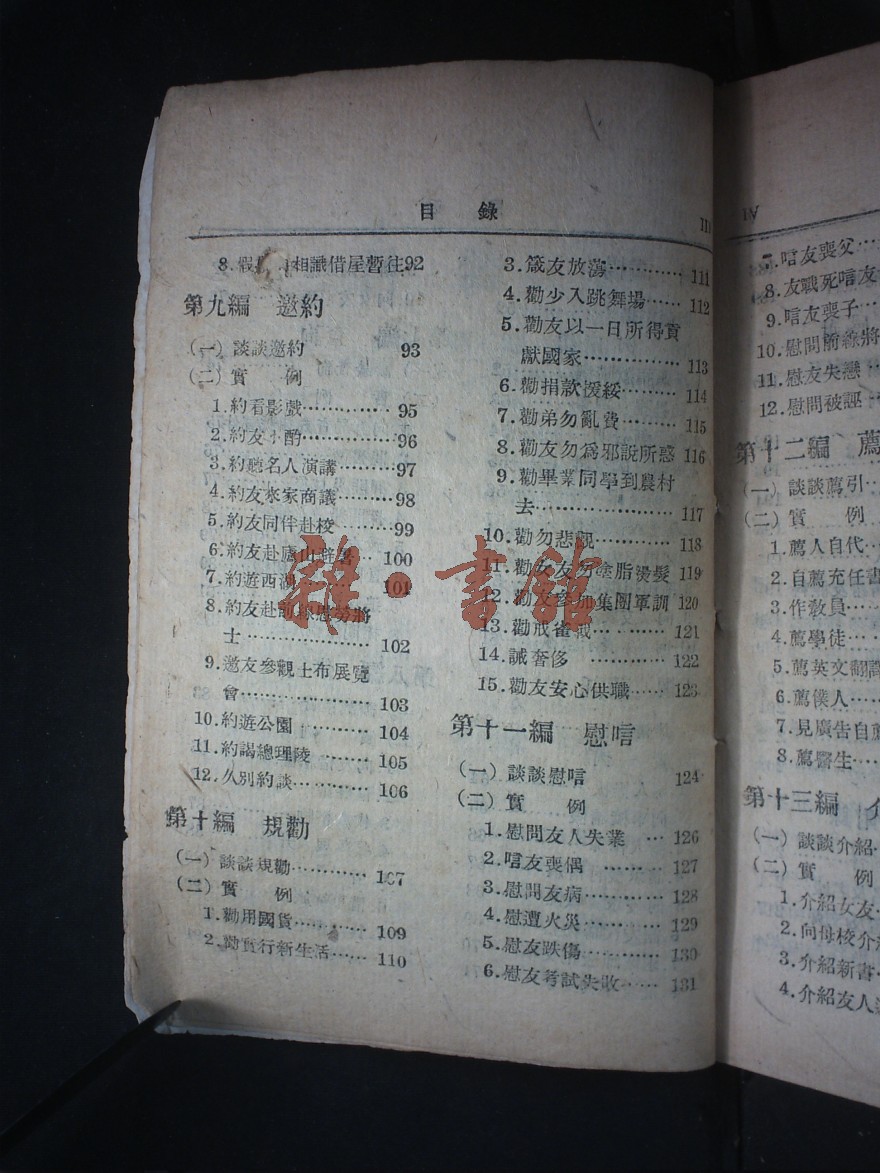 目 錄
III
8.假 相識借屋暫住92
第九編 邀約
(一)談談邀約 93
(二)實 例
1.約看影戲………… 95
2.約友小酌…………96
3.約聽名人演講………97
4.約友來家商議………98
5.約友同伴赴校………99
6.約友赴廬山避暑… 100
7.約遊西湖………101
8.約友赴前線慰勞將
士………………… 102
9.邀友參觀土布展覽
會………………… 103
10.約遊公園………… 104
11.約謁總理陵 ……… 105
12.久別約談………… 106
第十編 規勸
(一)談談規勸………… 107
(二)實 例
1.勸用國貨………… 109
2.勸實行新生活…… 110
3.箴友放蕩…………111
4.勸少入跳舞場……112
5.勸友以一日所得貢
獻國家……………113
6.勸捐款援綏………114
7.勸弟勿亂費………115
8.勸友勿爲邪說所惑 116
9.勸畢業同學到農村
去…………………117
10.勸勿悲觀…………118
11.勸女友勿塗脂燙髮 119
12.勸友參加集團軍訓 120
13.勸戒雀戲…………121
14.誡奢侈 …………122
15.勸友安心供職……123
第十一編 慰唁
(一)談談慰唁 124
(二)實 例
1.慰問友人失業 … 126
2.唁友喪偶 ……… 127
3.慰問友病………… 128
4.慰遭火災………… 129
5.慰友跌傷………… 130
6.慰友考試失敗…… 131
雜·書館
IV
7.唁友喪父……
8.友戰死唁友
9.唁友喪子…
10.慰問前線將
11.慰友失戀…
12.慰問被誣…
第十二編 薦
(一)談談薦引…
(二)實 例
1.薦人自代…
2.自薦充任書
3.作敎員……
4.薦學徒……
5.薦英文翻譯
6.薦僕人……
7.見廣告自薦
8.薦醫生……
第十三編 介
(一)談談介紹…
(二)實 例
1.介紹女友…
2.向母校介紹
3.介紹新書…
4.介紹友人